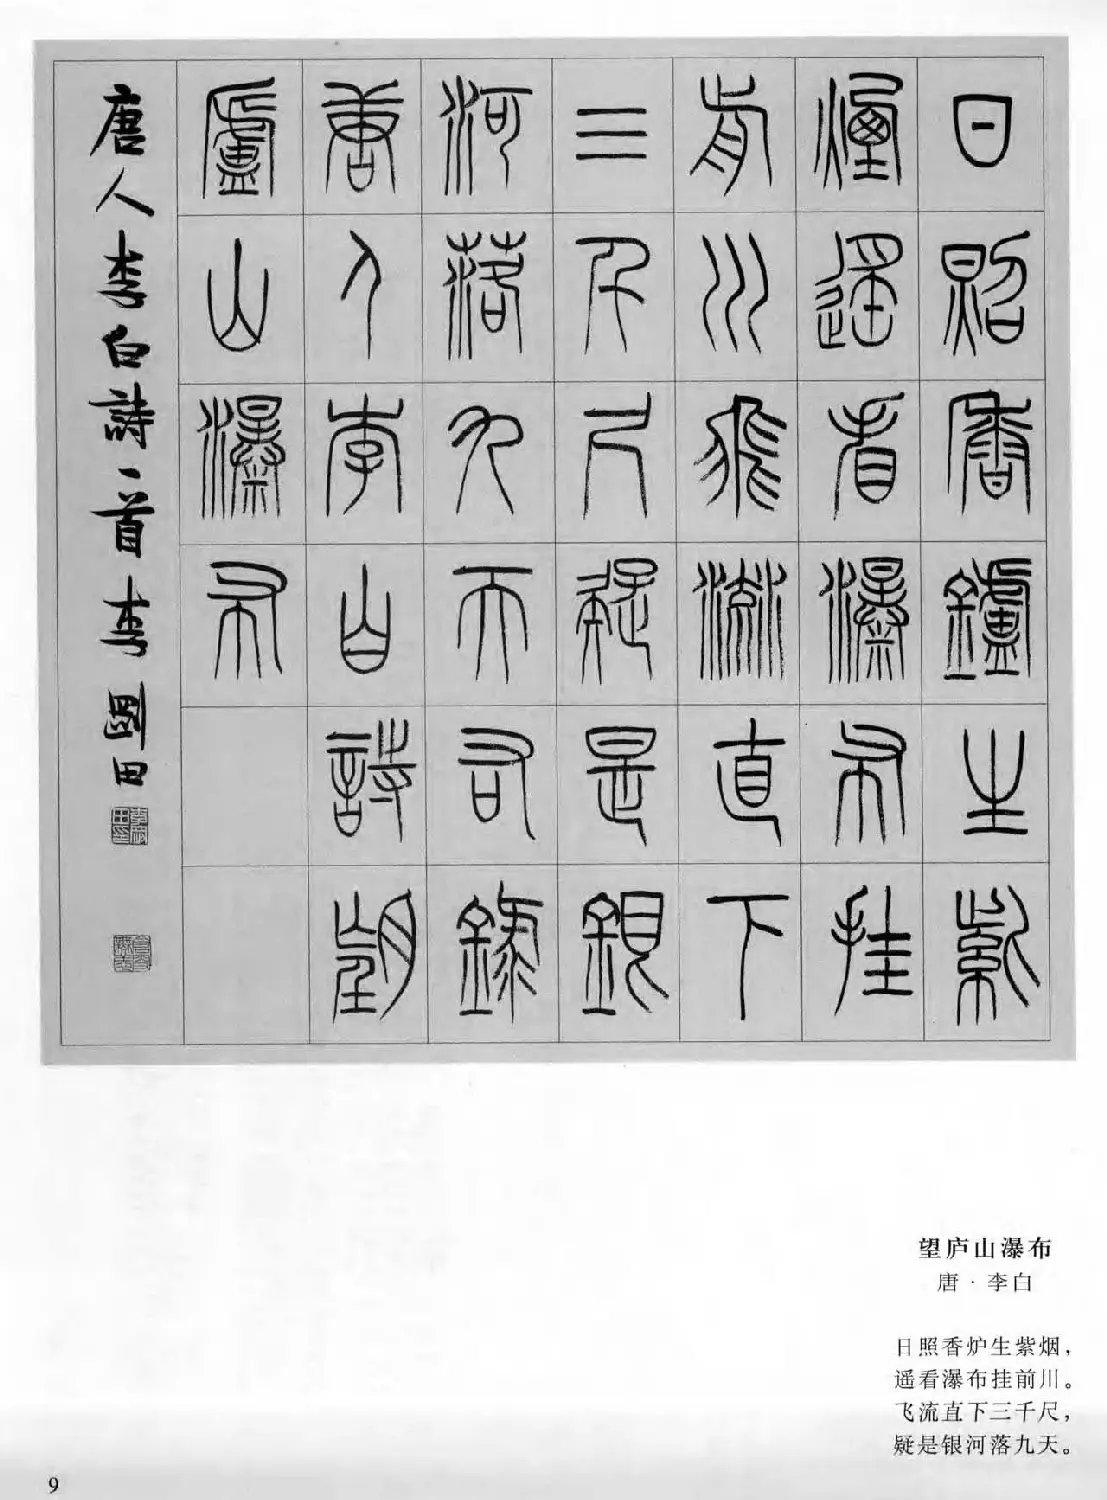 日照香鑪生紫
煙遥看瀑布挂
前川飛流直下
三千尺疑是銀
河落九天右錄
唐人李白詩望
廬山瀑布
唐人李白詩一首李國田
望庐山瀑布
唐·李白
日照香炉生紫烟，
遥看瀑布挂前川。
飞流直下三千尺，
疑是银河落九天。
9